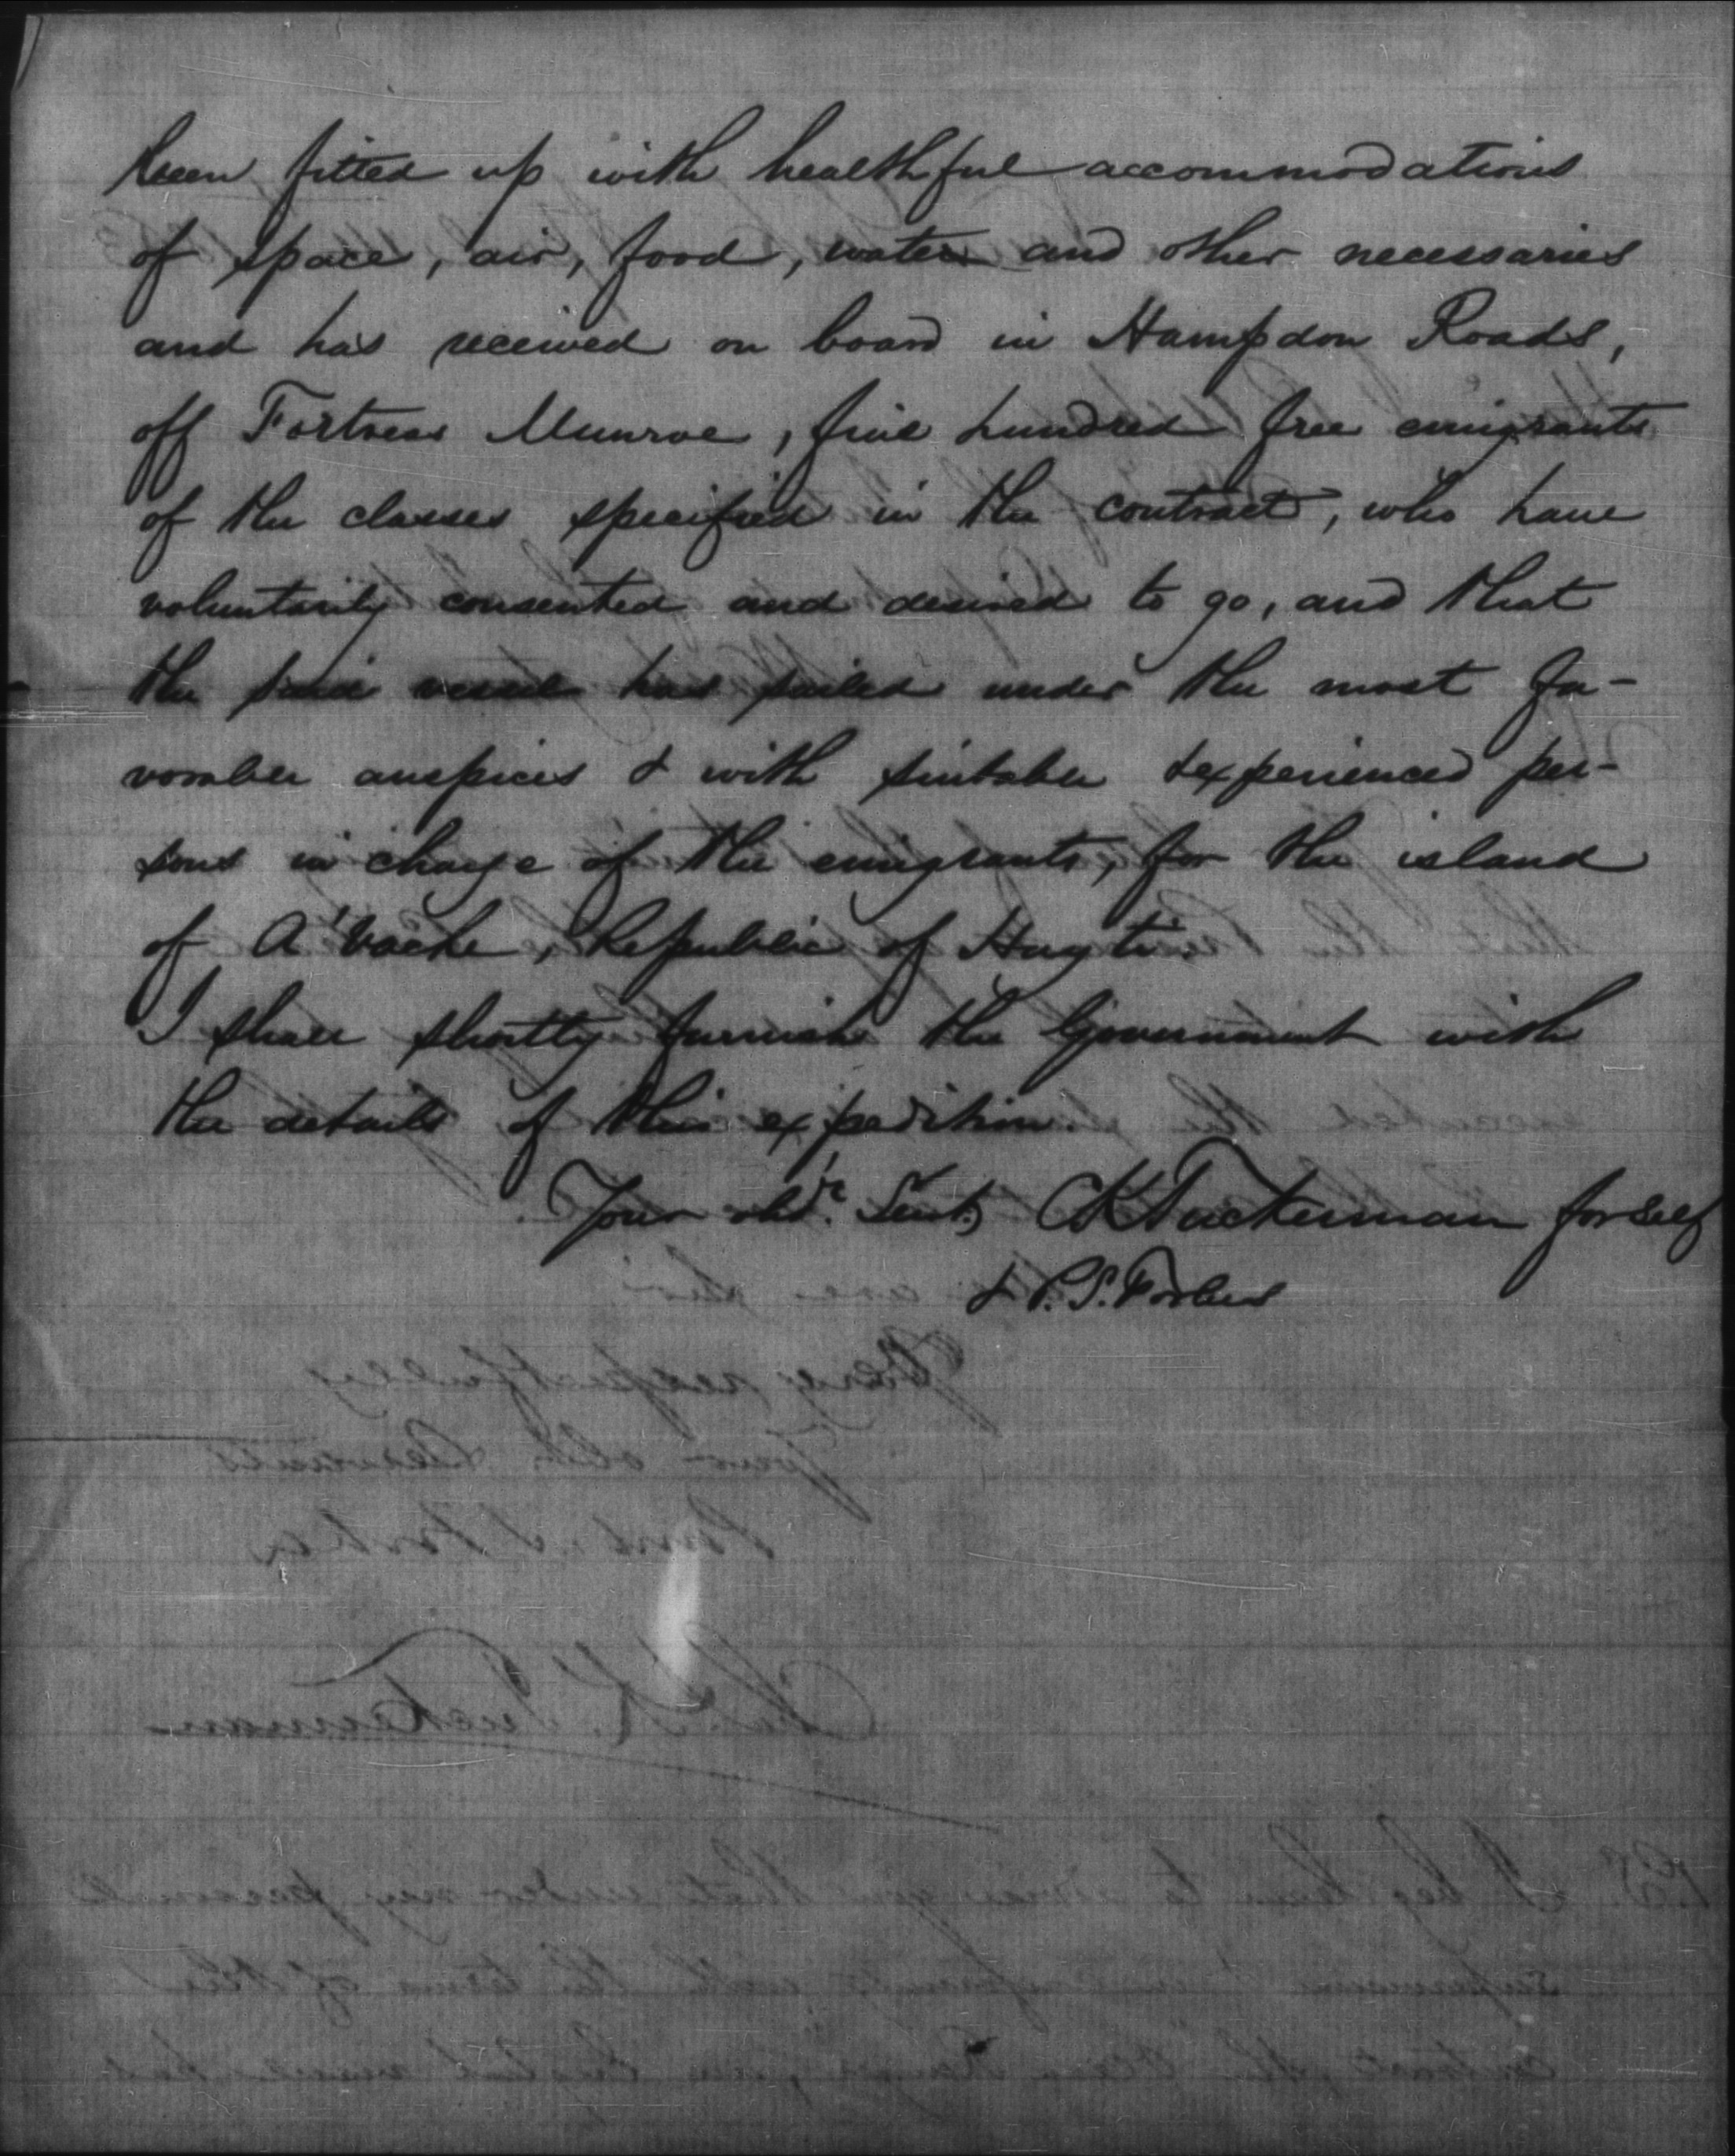 been fitted up with healthful accommodations
of space, air, food, water and other necessaries
and has received on board in Hampdon Roads,
off Fortress Munroe, five hundred free emigrants
of the classes specified in the contract, who have
voluntarily consented and desired to go, and that
the said vessel has sailed under the most fa-
vorable auspices & with suitable & experienced per-
sons in charge of the emigrants, for the island
of A'Vache, Republic of Hayti.
I shall shortly furnish the Government with
the details of this expedition.
Your obdt. Servt, CKTuckerman for self
& P.S. Forbes